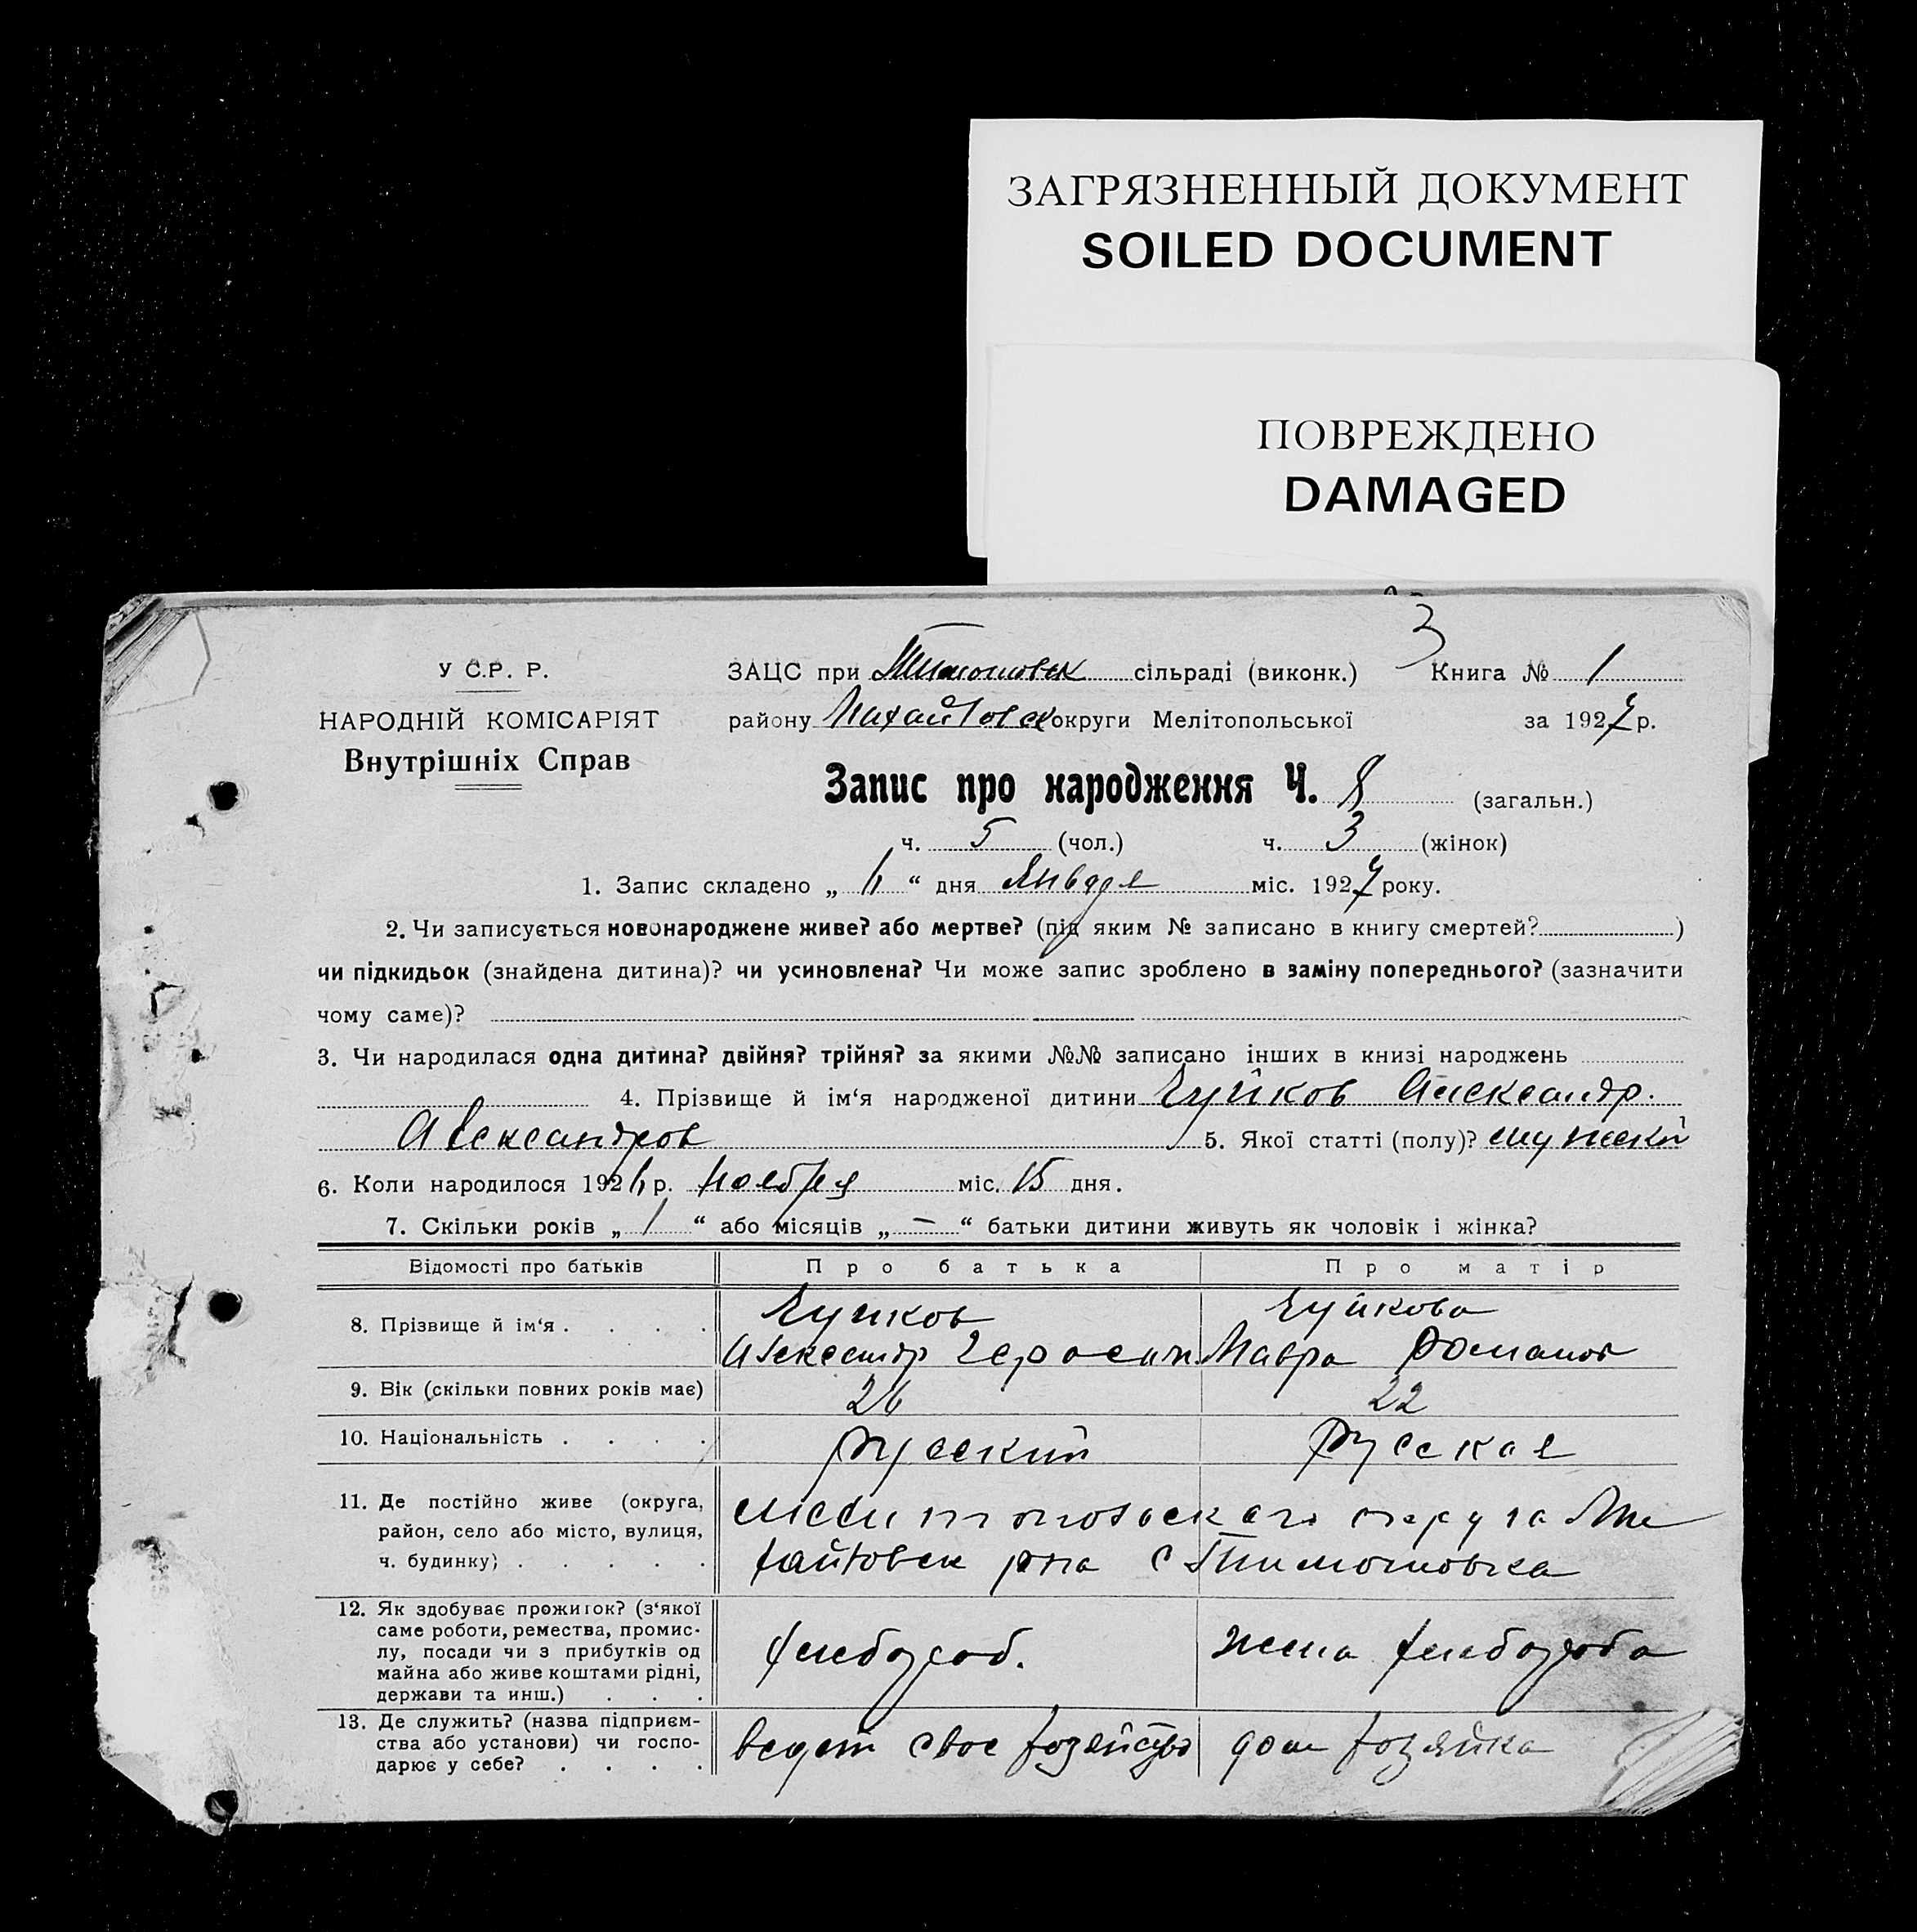 ЗАГРЯЗНЕННЫЙ ДОКУМЕНТ
SOILED DOCUMENT
ПОВРЕЖДЕНО
DAMAGED
3
У С.Р. Р.
ЗАЦС при Тимошовск сільраді (виконк.) Книга № 1
НАРОДНІЙ КОМІСАРІЯТ
району Михайловск округи Мелітопольської за 1927 р.
Внутрішніх Справ
Запис про народження Ч. 8 (загальн.)
ч. 5 (чол.) ч. 3 (жінок)
1. Запис складено „ “ дня Января міс. 1927 року.
2. Чи записується новонароджене живе? або мертве? (під яким № записано в книгу смертей? )
чи підкидьок (знайдена дитина)? чи усиновлена? Чи може запис зроблено в заміну попереднього? (зазначити
чому саме)?
3. Чи народилася одна дитина? двійня? трійня? за якими №№ записано інших в книзі народжень
4. Прізвище й ім‘я народженої дитини Чуйков Александр.
Александров 5. Якої статті (полу)? мужской
6. Коли народилося 1926 р. Ноября міс. 15 дня.
7. Скільки років „ 1 “ або місяців „ – “ батьки дитини живуть як чоловік і жінка?
Відомості про батьків
Про батька
Про матір
8. Прізвище й ім‘я . . . .
Чуйков
Александр Герасим
Чуйкова
Мавра Романов
9. Вік (скільки повних років має)
26
22
10. Національність . . . .
русский
русская
11. Де постійно живе (округа,
район, село або місто, вулиця,
ч. будинку) . . . . .
Мелитопольского округа Ми
хайловск рна с Тимошовка
12. Як здобуває прожиток? (з‘якої
саме роботи, ремества, промис-
лу, посади чи з прибутків од
майна або живе коштами рідні,
держави та инш.) . . .
хлебороб.
жена хлебороба
13. Де служить? (назва підприєм-
ства або установи) чи госпо-
дарює у себе? . . . .
ведет свое хозяйство
дом хозяйка